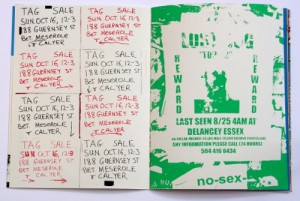 TAG SALE
SUN OCT 16, 12-3
188 GUERNSEY ST
BET MESEROLE
& CALYER
TAG SALE
SUN OCT 16, 12-3
188 GUERNSEY ST
BET MESEROLE
& CALYER
TAG SALE
SUN OCT 16, 12-3
188 GUERNSEY ST
BET MESEROLE
& CALYER
TAG SALE
SUN OCT 16, 12-3
188 GUERNSEY ST
BET MESEROLE
& CALYER
TAG SALE
SUN OCT 16, 12-3
188 GUERNSEY ST
BET MESEROLE
& CALYER
TAG SALE
SUN OCT 16, 12-3
188 GUERNSEY ST
BET MESEROLE
& CALYER
TAG SALE
SUN OCT 16, 12-3
188 GUERNSEY ST
BET MESEROLE
& CALYER
TAG SALE
SUN OCT 16, 12-3
188 GUERNSEY ST
BET MESEROLE
& CALYER
LOST DOG
REWARD
REWARD
LAST SEEN 8/25 4AM AT
DELANCEY ESSEX
ANY INFORMATION PLEASE CALL (24 HOURS)
504 416 6434
no-sex